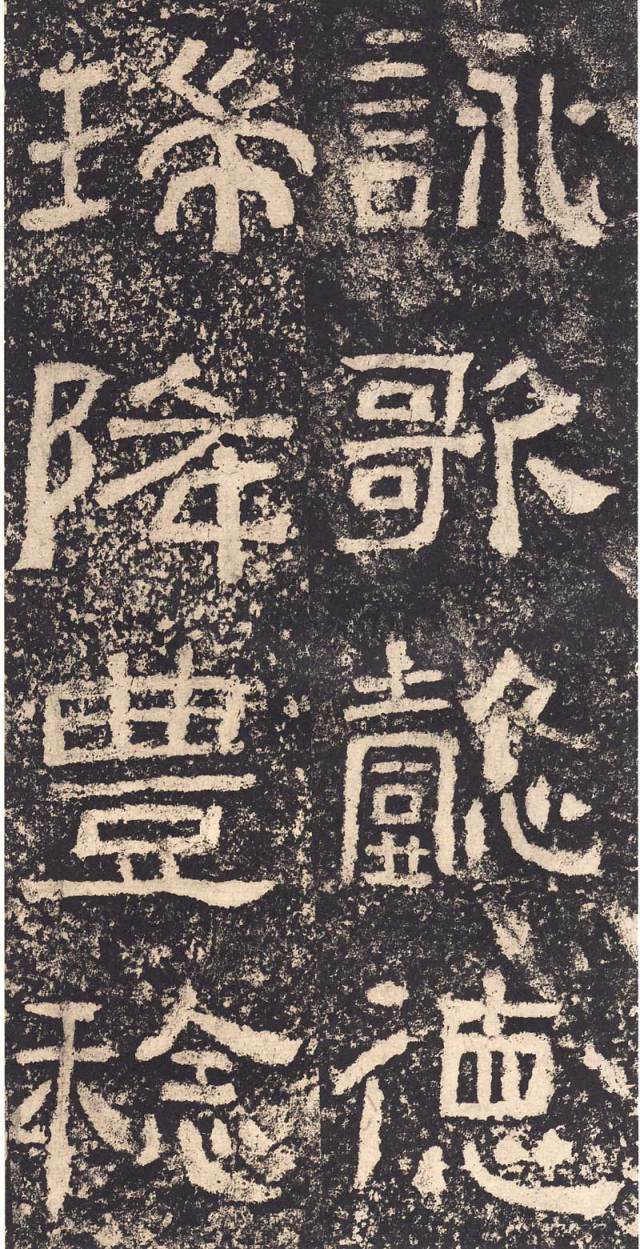 詠歌懿德
瑞降豐稔